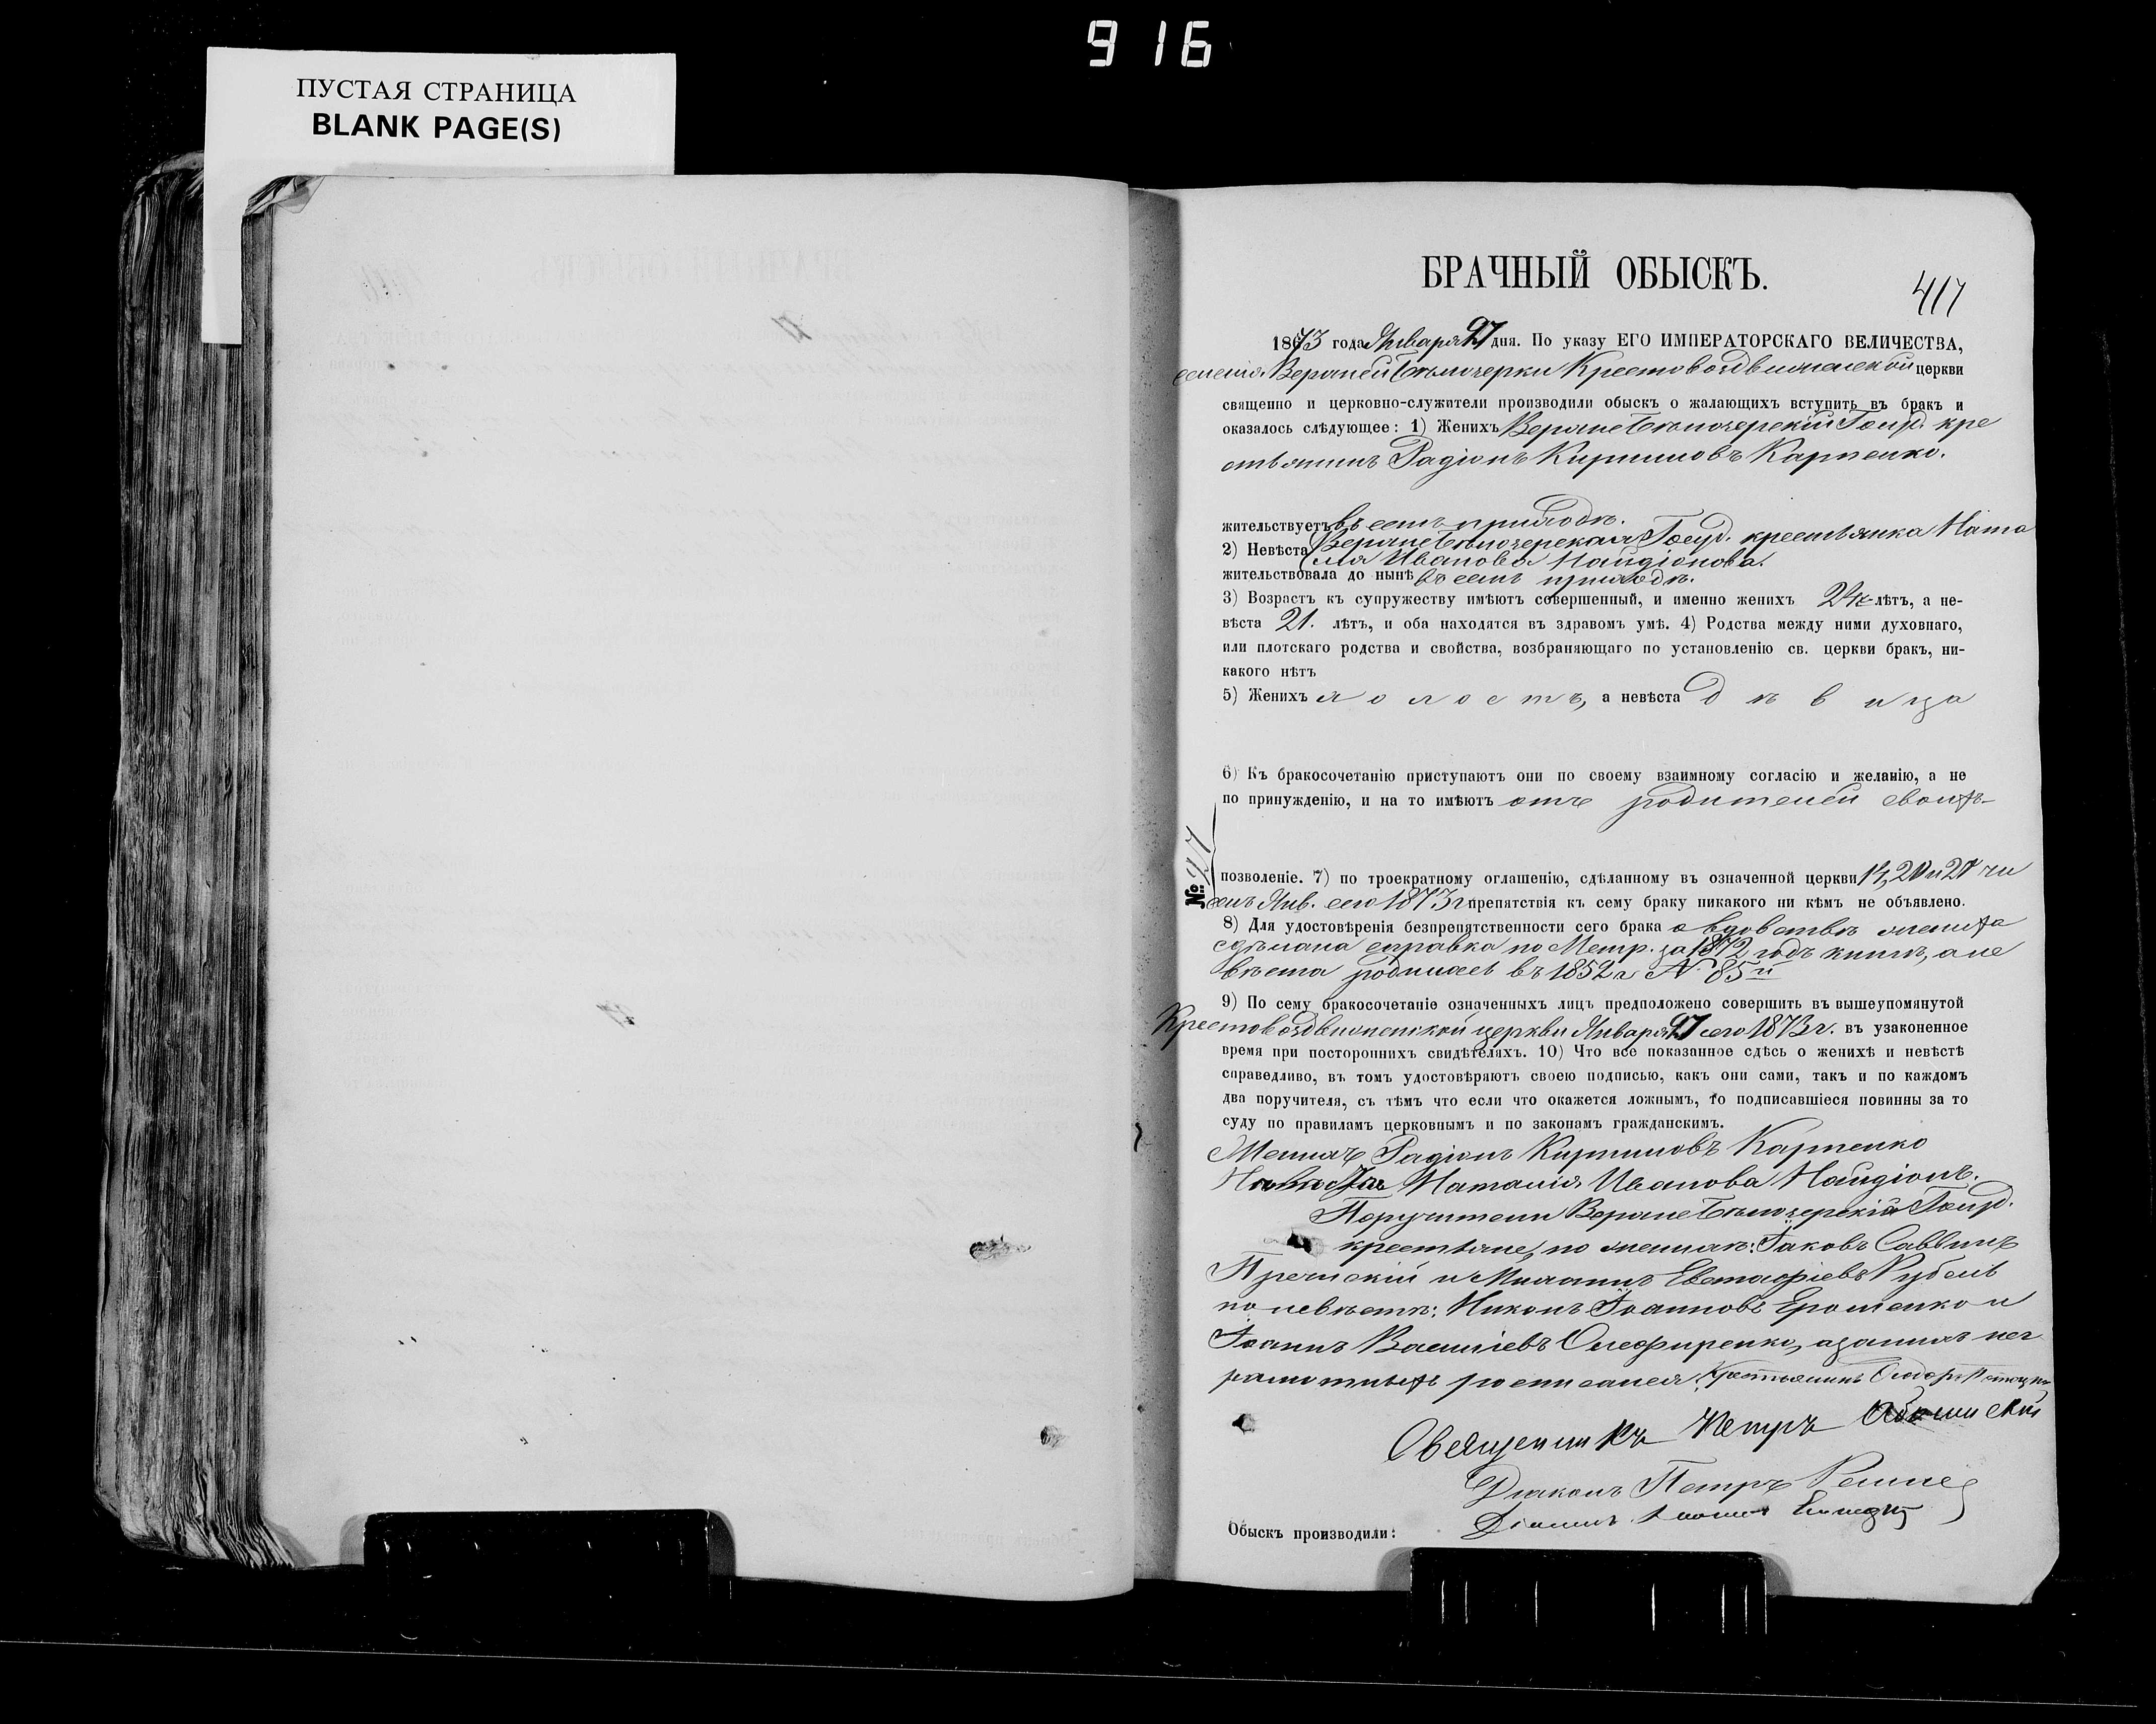 916
ПУСТАЯ СТРАНИЦА
BLANK PAGE(S)
БРАЧНЫЙ ОБЫСКЪ.
417
1873 года Января 27 дня. По указу ЕГО ИМПЕРАТОРСКАГО ВЕЛИЧЕСТВА,
селенія Верхней Бѣлозерки Крестовоздвиженской церкви
священно и церковно-служители производили обыскъ о жалающихъ вступить въ бракъ и
оказалось слѣдующее: 1) Женихъ Верхне Бѣлозерскій Госуд. кре
стьянинъ Радіонъ Кирилловъ Карпенко.
жительствуетъ въ семъ приходѣ.
2) Невѣста Верхне Бѣлозерская Госуд. крестьянка Ната
лія Иванова Найдіонова.
жительствовала до нынѣ въ семъ приходѣ.
3) Возрастъ къ супружеству имѣютъ совершенный, и именно женихъ лѣтъ, а не-
вѣста 21. лѣтъ, и оба находятся въ здравомъ умѣ. 4) Родства между ними духовнаго,
или плотскаго родства и свойства, возбраняющаго по установленію св. церкви бракъ, ни-
какого нѣтъ
5) Женихъ холостъ, а невѣста дѣвица
6) Къ бракосочетанію приступаютъ они по своему взаимному согласію и желанію, а не
по принужденію, и на то имѣютъ отъ родителей своихъ
№ 27
позволеніе. 7) по троекратному оглашенію, сдѣланному въ означенной церкви чи
селъ Янв. сего 1873 г препятствія къ сему браку никакого ни кѣмъ не объявлено.
8) Для удостовѣренія безпрепятственности сего брака о вдовствѣ жениха
сдѣлана справка по Метр. за 1872 годъ книгѣ, а не
вѣста родилась въ 1852 г № 85й
9) По сему бракосочетаніе означенныхъ лицъ предположено совершить въ вышеупомянутой
Крестовоздвиженской церкви Января 27 сего 1873 г. въ узаконенное
время при постороннихъ свидѣтеляхъ. 10) Что все показанное сдѣсь о женихѣ и невѣстѣ
справедливо, въ томъ удостовѣряютъ своею подписью, какъ они сами, такъ и по каждомъ
два поручителя, съ тѣмъ что если что окажется ложнымъ, то подписавшіеся повинны за то
суду по правиламъ церковнымъ и по законамъ гражданскимъ.
Женихъ Радіонъ Кирилловъ Карпенко
Наталія Иванова Найдіонъ.
Поручители Верхне Бѣлозерскія Госуд.
крестьяне, по женихѣ: Іаковъ Саввинъ
и Евстафіевъ Рубель
по невѣстѣ: Никонъ Іоанновъ Ерошенко и
Іоаннъ Василіевъ Олефиренко, а за нихъ нег
рамотныхъ росписался Крестьянинъ
Священникъ Петръ
Діаконъ Петръ
Обыскъ производили: